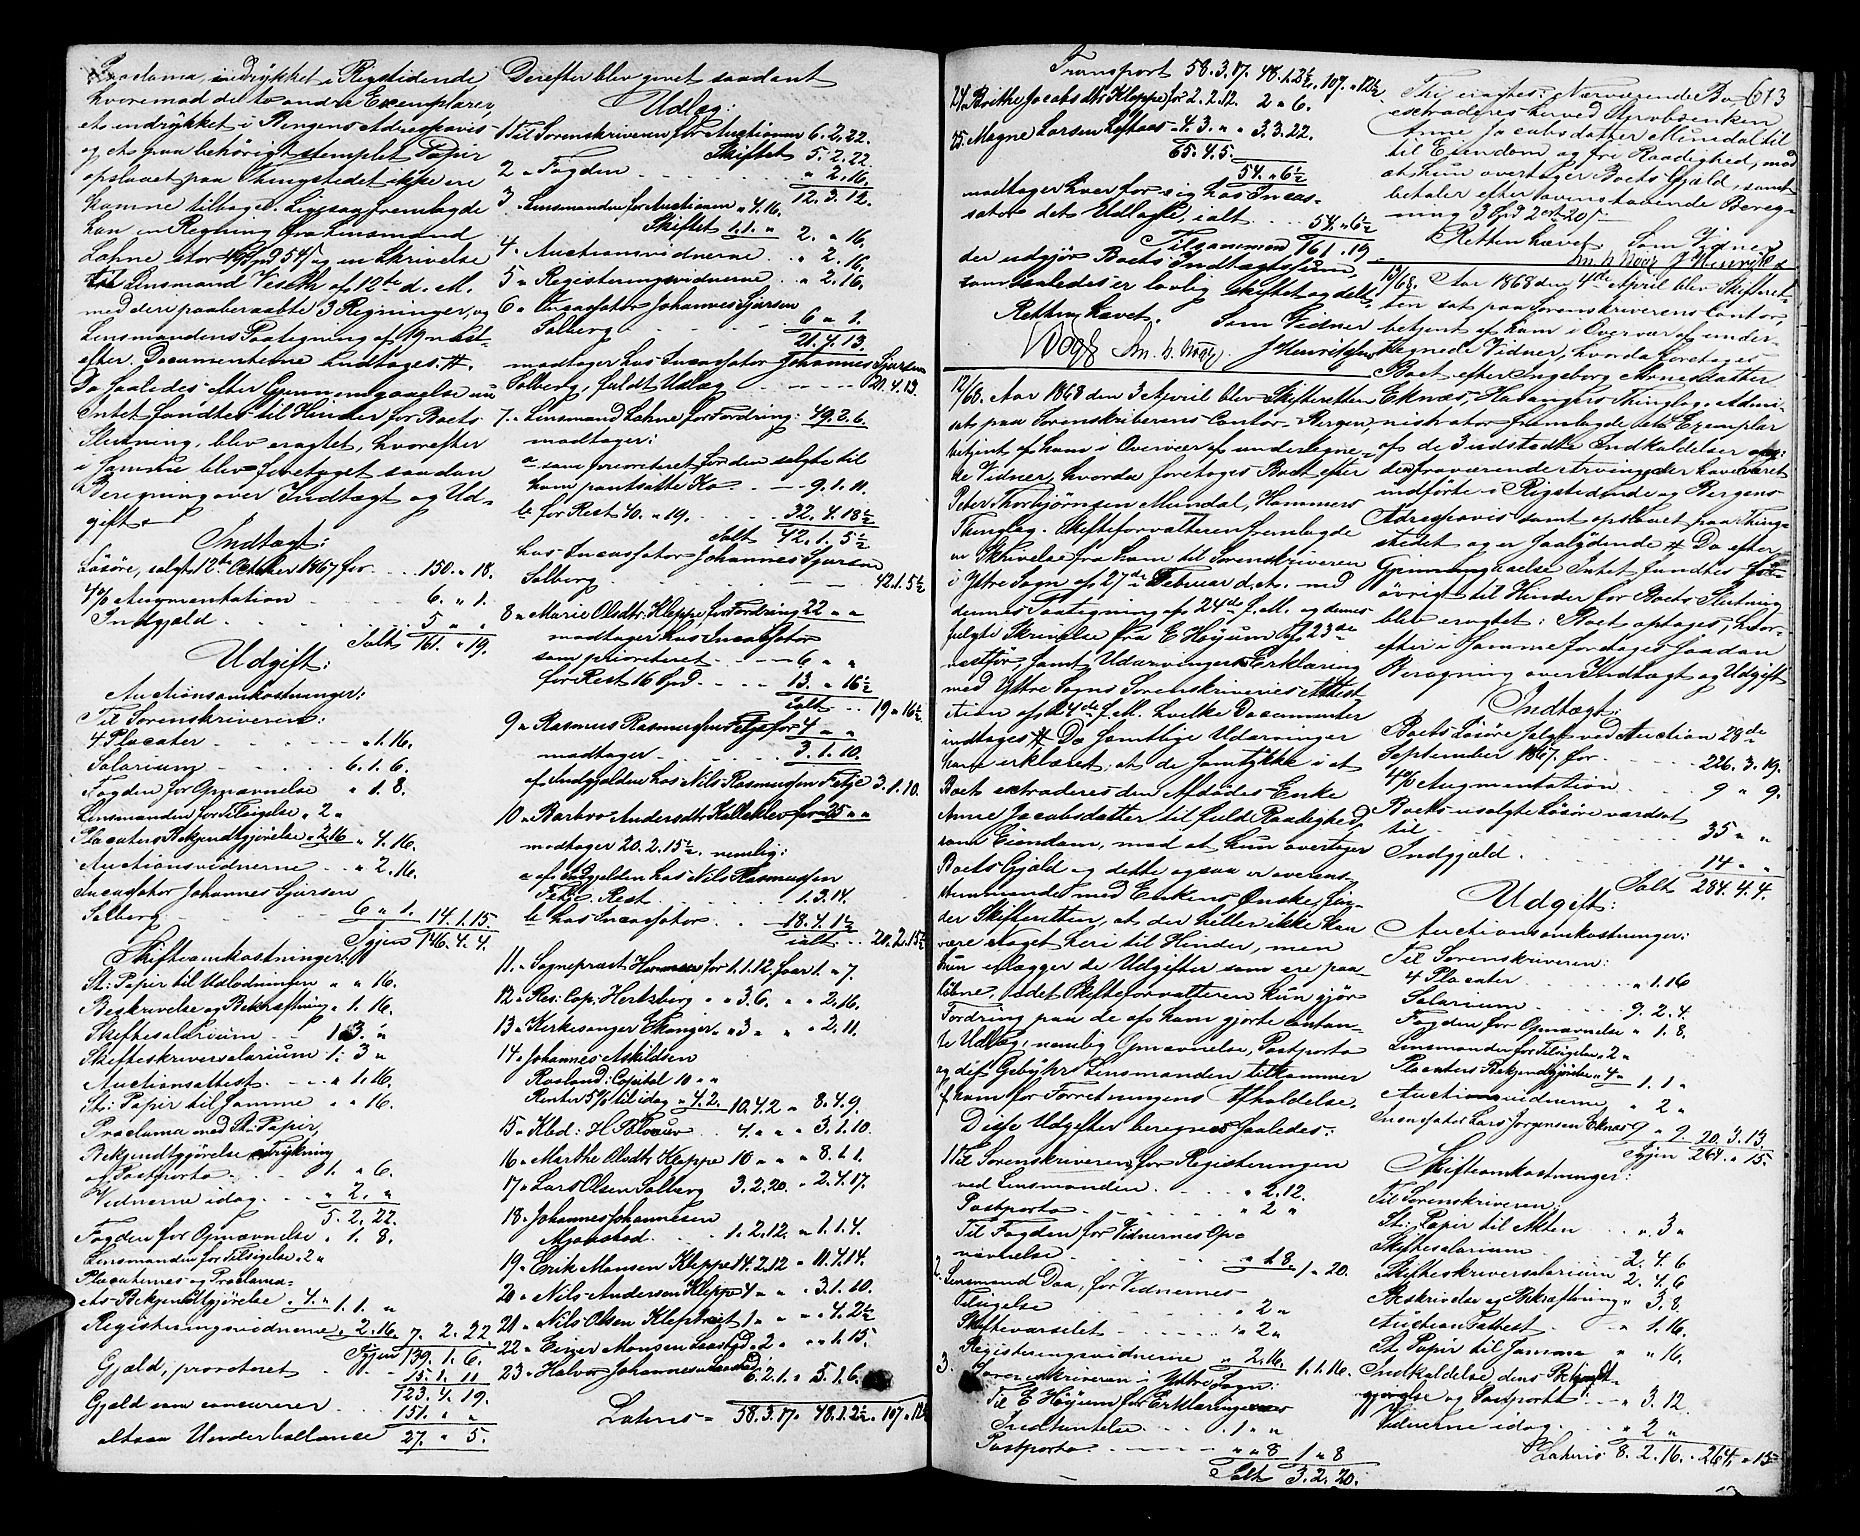 Proclama, indrykket i Rigstidende
hvoremod de to andre Exemplarer,
et indrykket i Bergens Adresseavis
og et paa behørigt stemplet Papir
opslaaet paa Thingstedet ikke ere
komne tilbage. Ligesaa fremlagde
han en Regning fra Lensmand
Lahne stor 49 Spd 54 β og en Skrivelse
Lensmand Vestk af 12te d. M.
med deri paaberaabte 3 Regninger, og
Lensmandens Paategning af 19
efter. Documenterne indtages #.
Da saaledes efter Gjennemgaaelse
Intet fandtes til Hinder for Boets
Slutning, blev eragtet, hvorefter
i Samme blev foretaget saadan
Beregning over Indtægt og Ud-
gift
Indtægt:
Løsøre, solgt 12te October 1867 for 150. " 18.
4% Augmentation 6. " 1.
Indgjæld 5 " "
Ialt 161. " 19.
Udgift:
Auctionsomkostninger:
Til Sorenskriveren:
4 Placater " 1. 16.
Salarium 6. 1. 6.
Fogden for Opnævnelse " 1. 8.
Lensmanden for Tilsigelse " 2 "
Placaters Bekjendtgjørelse " 2. 16 " 4. 16.
Auctionsvidnerne " 2. 16.
Incassator Johannes Sjursen
Solberg 6 " 1. 14. 1. 15
Igjen 146. 4. 4.
Skifteomkostninger:
St: Papir til Udlodningen " " 16.
Beskrivelse og Bekræftning " 1. 16.
Skiftesalarium 1 3. "
Skifteskriversalarium 1. 3 "
Auctionsattest " 1. 16.
St: Papir til Samme " " 16.
Proclama med St: Papir,
Bekjendtgjørelse Trykning
og Postporto 1. " 6.
Vidnerne idag " 2. "
5. 2. 22.
Fogden for Opnævnelse " 1. 8.
Lensmanden for Tilsigelse " 2 "
Placaternes og Proclama-
ets Bekjendtgjørelse " 4. " 1. 1. "
Registreringsvidnerne " 2. 16. 7. 2. 22
Igjen 139. 1. 6.
Gjæld, prioriteret 15. 1. 11
123. 4. 19.
Gjæld som concurerer 151. " "
altsaa Underballance 27. " 5.
Derefter blev givet saadant
Udlæg:
1 Til Sorenskriveren for Auctionen 6. 2. 22.
Skiftet 5. 2. 22
2 " Fogden " 2. 16.
12. 3. 12.
3 " Lensmanden for Auctionen " 4. 16.
Skiftet 1. 1. " 2. " 16.
4 " Auctionsvidnerne " 2. 16.
5 " Registreringsvidnerne " 2. 16.
6 " Incassator Johannes Sjursen
Solberg 6 " 1.
21. 4. 13.
modtager hos Incassator Johannes Sjursen
Solberg, fuldt Udlæg 21. 4. 13.
7. " Lensmand Lahne for Fordring: 49. 2. 6.
modtager:
a som prioriteret for den solgte til
ham pantsatte Ko 9. 1. 11.
b for Rest 40. " 19. 32. 4. 18½
Ialt 42. 1. 5½
hos Incassator Johannes Sjursen
Solberg 42. 1. 5½
8 " Marie Olsdtr Kleppe for Fordring 22 " "
modtager hos Incassator
som prioriteret 6 " "
for Rest 16 Spd 13. " 16½
ialt 19 " 16½
9 " Rasmus Rasmussen Fetje for 4 " "
modtager 3. 1. 10.
af Indgjælden hos Nils Rasmussen Fetje 3. 1. 10.
10 " Barbro Andersdtr Kalleklev for 25 " "
modtager 20. 2. 15½ nemlig:
a af Indgjælden hos Nils Rasmussen
Fetje Rest 1. 3. 14.
b hos Incassator 18. 4. 1½
ialt 20. 2. 15½
11. " Sognepræst for 1. 1. 12. faar 1. " 7.
12 " Res: Cap: Hertzberg " " 3. 6. " " 2. 16.
13 " Kirkesanger Ekanger " " 3 " " " 2. 11.
14 " Johannes Askildsen
Rosland: Capital 10 " "
Renter 5% til idag " 4. 2. 10. 4. 2 " 8. 4. 9.
15 " Kbd: H 4. " " " 3. 1. 10.
16 " Marthe Olsdtr Kleppe 10 " " " 8. 1. 1.
17 " Lars Olsen Solberg 3. 2. 20. " 2. 4. 17.
18 " Johannes Johannesen
Mjanstad 1. 2. 12. " 1. 1. 4.
19 " Erik Monsen Kleppe 14. 2. 12 " 11. 4. 14.
20 " Nils Andersen Kleppe 4 " " " 3. 1. 10.
21 " Nils Olsen Kleptveit 1 " " " " 4. 2½
22 " Einer Monsen 2 " " " 1. 15.
23 " Halvor Johannesen 6. 2. 1. " 5. 1. 6.
Lateris " 58. 3. 17. " 48. 1. 2½ " 107. " 12½
Transport 58. 3. 17. 48. 1. 2½. 107. " 12½.
24. Brithe Jacobsdtr Kleppe for 2. 2. 12. 2 " 6.
25. Magne Larsen Loftaas 4. 3. " " 3. 3. 22.
65. 4. 5.
54. " 6½
modtager hver for sig hos Incas-
sator det Udlagte, ialt 54. " 6½
Tilsammen 161. " 19
der udgjør Boets Indtægtssum,
som saaledes er lovlig skiftet og delt
Retten hævet. Som Vidner
12/68. Aar 1868 den 3 April blev Skifteretten
sat paa Sorenskriverens Contor i Bergen,
betjent af ham i Overvær af undertegne-
de Vidner, hvorda foretoges Boet efter
Peter Thorbjørnsen Mundal, Hammers
Thinglag. Skifteforvalteren fremlagde
en Skrivelse fra ham til Sorenskriveren
i Yttre Sogn af 27de Februar d. A. med
dennes Paategning af 24de f. M. og dennes
fulgte Skrivelse fra E Høyum af 23de
næstfør, samt Udarvingers Erklæring
med Yttre Sogns Sorenskriveries Attest
ation af 24de f. M. hvilke Documenter
indtages # Da samtlige Udarvinger
have erklæret, at de samtykke i at
Boet extraderes den Afdødes Enke
Anne Jacobsdatter til fuld Raadighed,
som Eiendom, mod at hun overtager
Boets Gjæld og dette ogsaa er overens-
stemmende med Enkens Ønske, fin-
der Skifteretten, at der heller ikke kan
være Noget heri til Hinder, men
hun erlægger de Udgifter som ere paa-
løbne, idet Skifteforvalteren kun gjør
Fordring paa de af ham gjorte contan-
te Udlæg, nemlig Opnævnelse, Postporto
og dit Gebyhr Lensmanden tilkommer
f ham for Forretningens Afholdelse.
Disse Udgifter beregnes saaledes:
1 Til Sorenskriveren for Registreringen
ved Lensmanden " 2. 12.
Postporto " 2 "
Til Fogden for Vidnernes Op-
nævnelse " 1. 8. 1 " 20.
2. Lensmand Daa, for Vidnernes
Tilsigelse " 2 "
Skiftevarselet " 2 "
Registreringsvidnerne " 2. 16. 1. 1. 16.
3. Sorenskriveren i Yttre Sogn.
Til E Høyum for Erklæringens
Indhentelse 1 " "
Postporto " " 8 1 " 8
Ialt 3. 2. 20.
613
Thi eragtes: Nærværende Bo
extraderes herved Stervboenken
Anne Jacobsdatter Mundal til
til Eiendom og fri Raadighed, mod
at hun overtager Boets Gjæld, samt
betaler efter ovenstaaende Bereg-
ning 3 Spd 2 ort 20 β
Retten hævet Som Vidner
13/68. Aar 1868 den 4de April blev Skifteret-
ten sat paa Sorenskriverens Contor,
betjent af ham i Overvær af under-
tegnede Vidner, hvorda foretoges
Boet efter Ingeborg Arnesdatter
Eknæs, Hosangers Thinglag. Admi-
nistrator fremlagde et Exemplar
af de 3 udstedte Indkaldelser
den fraværende Arving, der have været
indførte i Rigstidende og Bergens
Adresseavis samt opslaaet paa Thing-
stedet og er saalydende # Da efter
Gjennemgaaelse Intet fandtes
øvrigt til Hinder for Boets Slutning
blev eragtet: Boet optages, hvor-
efter i Samme foretoges saadan
Beregning over Indtægt og Udgift
Indtægt:
Boets Løsøre solgt ved Auction 28de
September 1867 for 226. 3. 19.
4% Augmentation 9 " 9.
Boets usolgte Løsøre vurderet
til 35 " "
Indgjæld 14 " "
Ialt 284. 4. 4.
Udgift:
Auctionsomkostninger:
Til Sorenskriveren:
4 Placater " 1. 16
Salarium 9. 2. 4.
Fogden for Opnævnelse " 1. 8.
Lensmanden for Tilsigelse " 2 "
Placaters Bekjendtgjørelse " 4 " 1. 1 "
Auctionsvidnerne " 2 "
Incassator Lars Jørgensen Eknæs 9 " 9 20. 3. 13
Igjen 264. " 15.
Skifteomkostninger:
Til Sorenskriveren,
St: Papir til Akten " 3 "
Skiftesalarium 2. 4. 6
Skifteskriversalarium 2. 4. 6
Beskrivelse og Bekræftning " 3. 8.
Auctionsattest " 1. 16.
St Papir til Samme " " 16.
Indkaldelse, dens Bekjendt-
gjørelse og Postporto " 3. 12.
Vidnerne idag " 2 "
Lateris 8. 2. 16. " 264. " 15